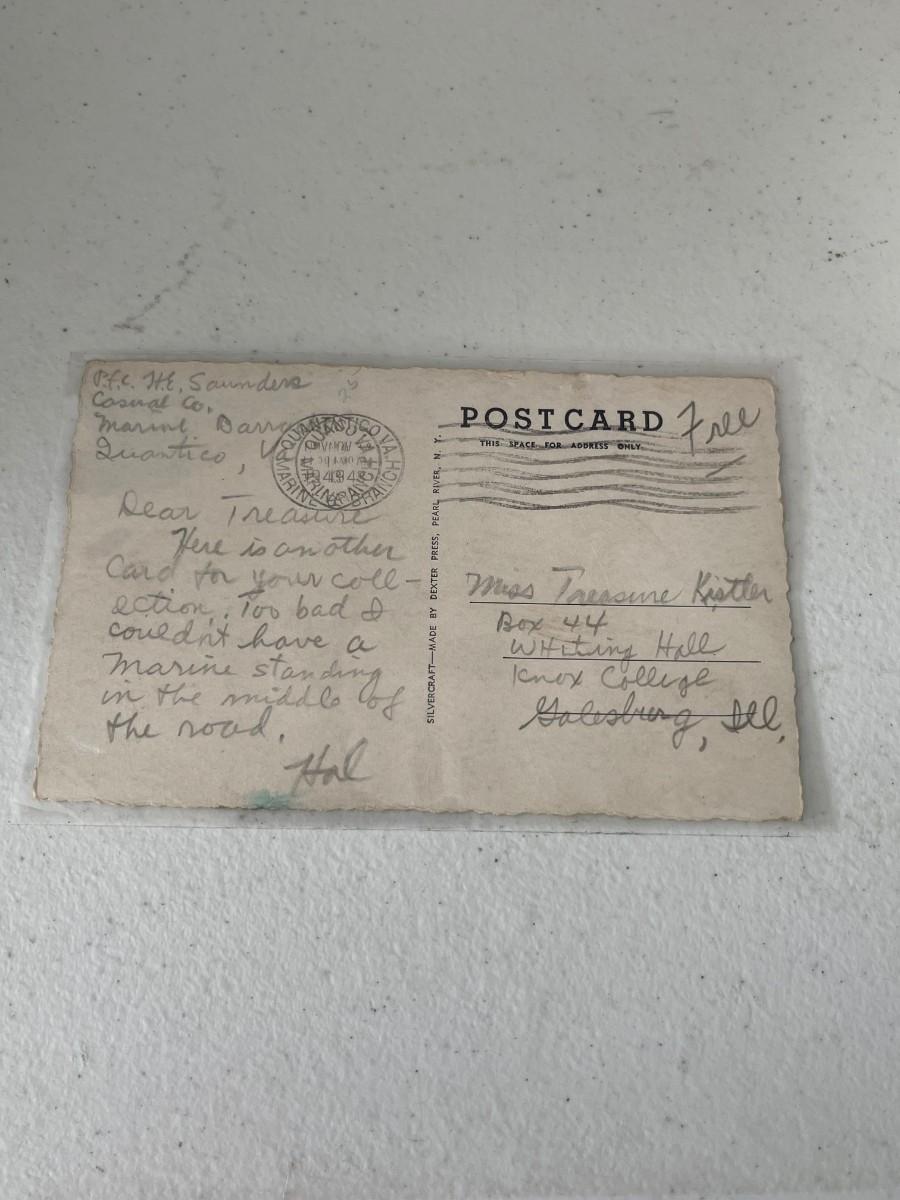 P.f.c. H.E. Saunders
Casual Co.
Marine Barra
Quantico, V
QUANTICO VA.
MARINE BRANCH
Dear Treasure
Here is another
Card for your coll-
ection. Too bad I
couldn't have a
Marine standing
in the middle of
the road.
Hal
SILVERCRAFT—MADE BY DEXTER PRESS, PEARL RIVER, N. Y.
POST CARD
THIS SPACE FOR ADDRESS ONLY
Free
Miss Treasure Kistler
Box 44
Whiting Hall
Knox College
Galesburg, Ill.